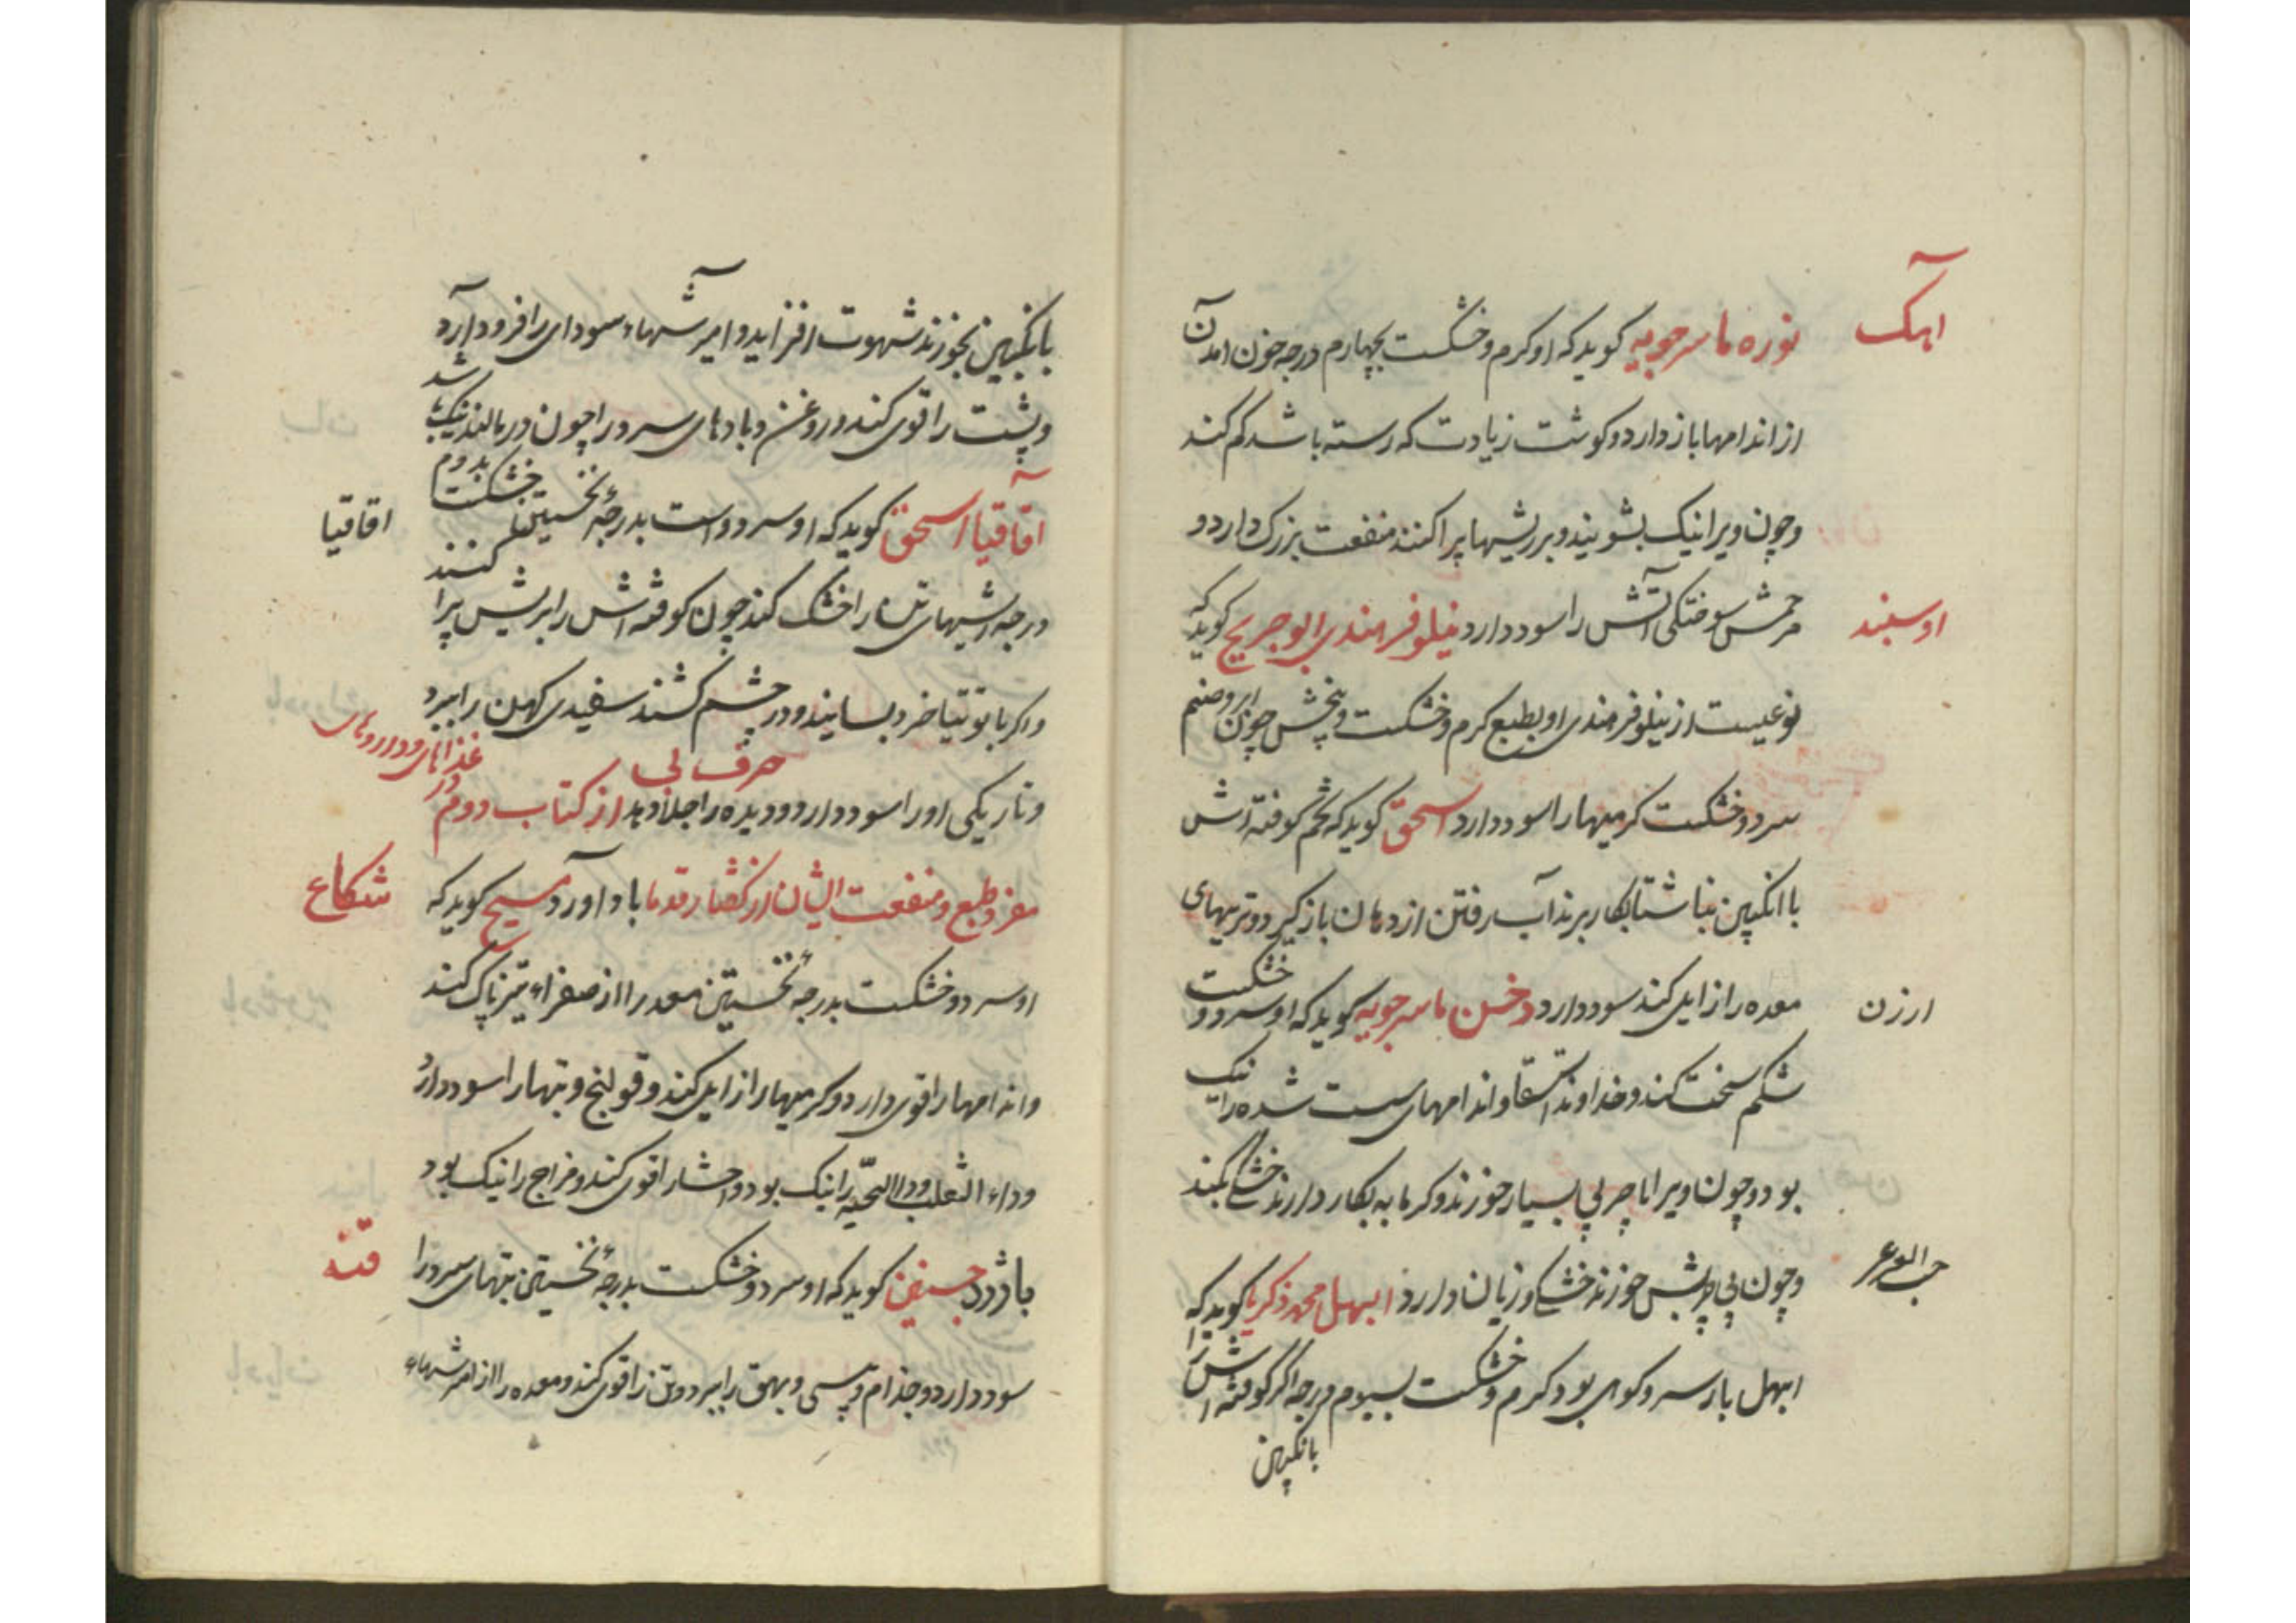 آهک
نوره ماسرجویه کوید که او کرم و خشکست بچهارم درجه خون امدن
از اندامها باز دارد و کوشت زیادت که رسته باشد کم کند
و چون ویرا نیک بشویند و بر ریشها پراکنند منفعت بزرک دارد و
سوختکی آتش را سود دارد نیلوفر هندی ابوجریح کوید که
اوسبند
نوعیست از نیلوفر هندی او بطبع کرم و خشکست و بیخش چون
سرد و خشکست کرمیها را سود دارد اسحق کوید که تخم کوفته اش
با انکبین بناشتا بکار برند آب رفتن از دهان باز کیرد و تریهای
معده را زایل کند سود دارد دخن ماسرجویه کوید که او سرد و خشکست
ارزن
شکم سخت کند و خداوند استسقا و اندامهای سست شده را نیک
بود و چون ویرا با چربی بسیار خورند و کرمابه بکار دارند خشکی نکند
و چون بی چربش خورند خشکی آورد زیان دارد ابهل محمد زکریا کوید که
حب العرعر
ابهل بار سرو کوهی بود کرم و خشکست بسیوم درجه اکر کوفته اش را
بانکبین
بانکبین بخورند شهوت افزاید و آمیزشهاء سودای را فرود آرد
و پشت را قوی کند و روغن و بادهای سرد را چون در مالند نیک باشد
اقاقیا اسحق کوید که او سرد و است بدرجهٔ نخستین خشکست بدوم
اقاقیا
درجه ریشهای تن را خشک کند چون کوفته اش را بریش پراکنند
و اکر با توتیا خرد بسایند و در چشم کشند سفیدی کهن را ببرد
و تاریکی او را سود دارد و دیده را جلا دهد از کتاب دوم در غذاهای و داروهای
حرف بی
مفرد و طبع و منفعت ایشان از کفتار قدما باداورد مسیح کوید که
شکاع
او سرد و خشکست بدرجهٔ نخستین معده را از صفراء تیز پاک کند
و اندامها را قوی دارد و کرمیها را زایل کند و قولنج و تبها را سود دارد
و داء الثعلب و داء الحیّه را نیک بود و احشا را قوی کند و مزاج را نیک بود
باژرد کوید که او سرد و خشکست بدرجهٔ نخستین تبهای سرد را
قنه
سود دارد و جذام و پیسی و بهق را ببرد و تن را قوی کند و معده را از آمیزشهاء